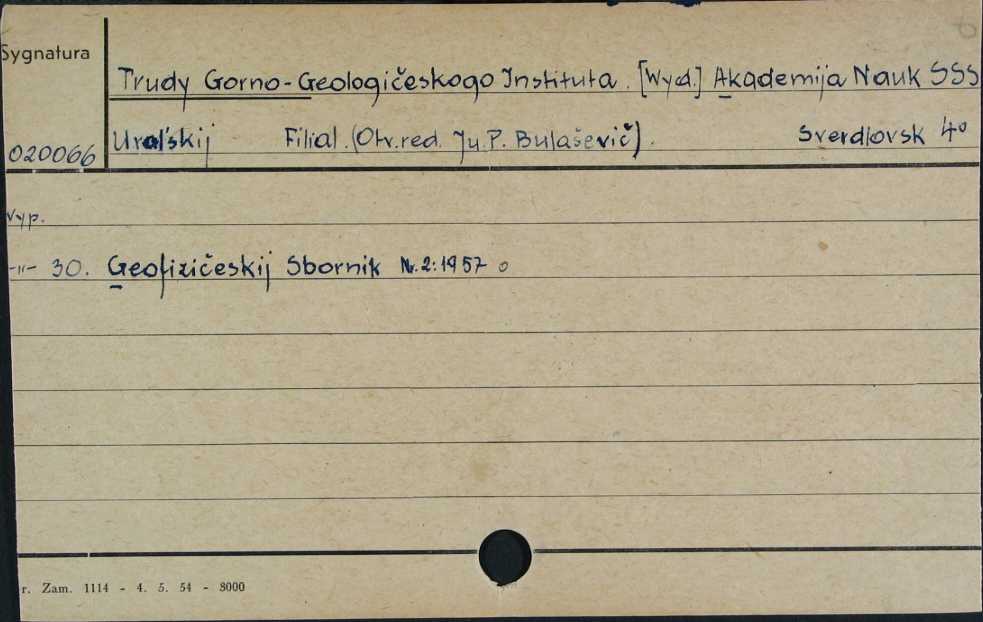 Sygnatura
Trudy Gorno-Geologičeskogo Instituta. [Wyd.] Akademija Nauk SSS
020066 Ural'skij Filial. (Otv.red. Ju.P. Bulaševič). Sverdlovsk 4°
Vyp.
-"- 30. Geofizičeskij Sbornik Nr.2:1957 o
r. Zam. 1114 - 4. 5. 54 - 8000